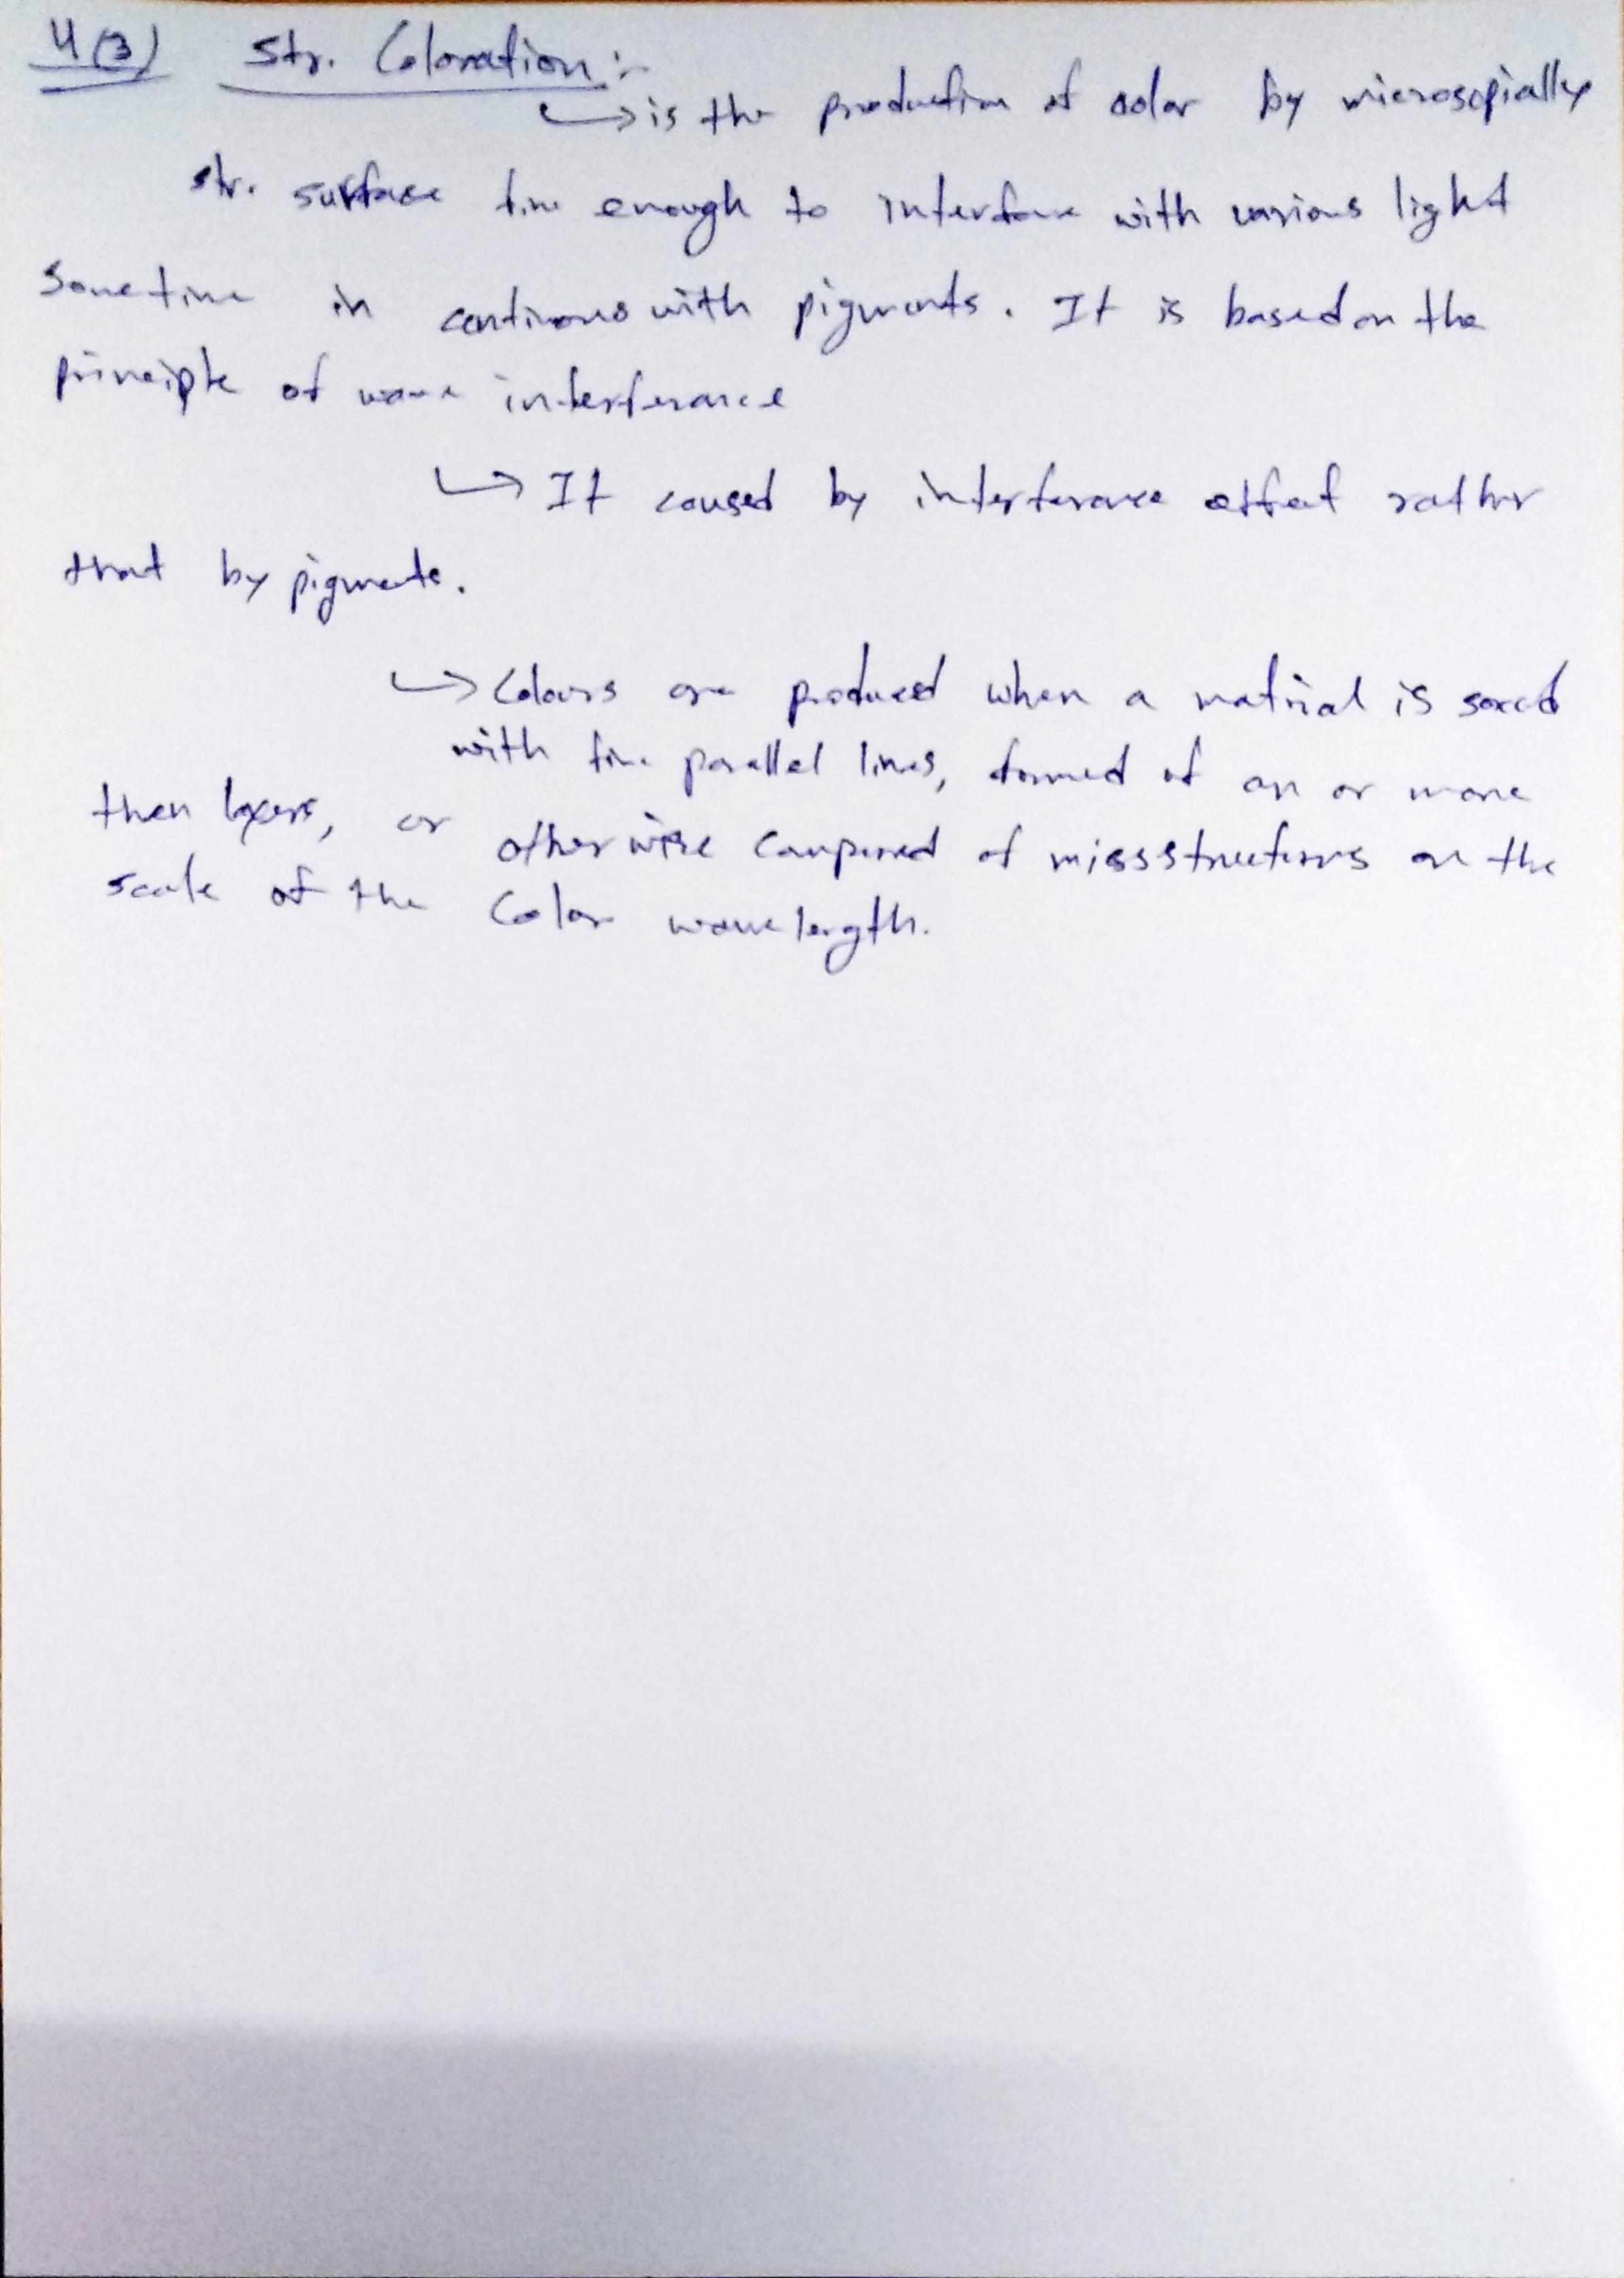 4(3) Str. Coloration :-
↳ is the production of color by microscopially
str. surface fine enough to interfare with various light
Sometime in continous with pigments. It is based on the
principle of wave interferance
↳ It caused by interferance effect rather
that by pigments.
↳ Colours are produced when a matrial is sored
with fine parallel lines, formed of on or more
then layers, or otherwise compared of missstructurs on the
scale of the Color wavelength.